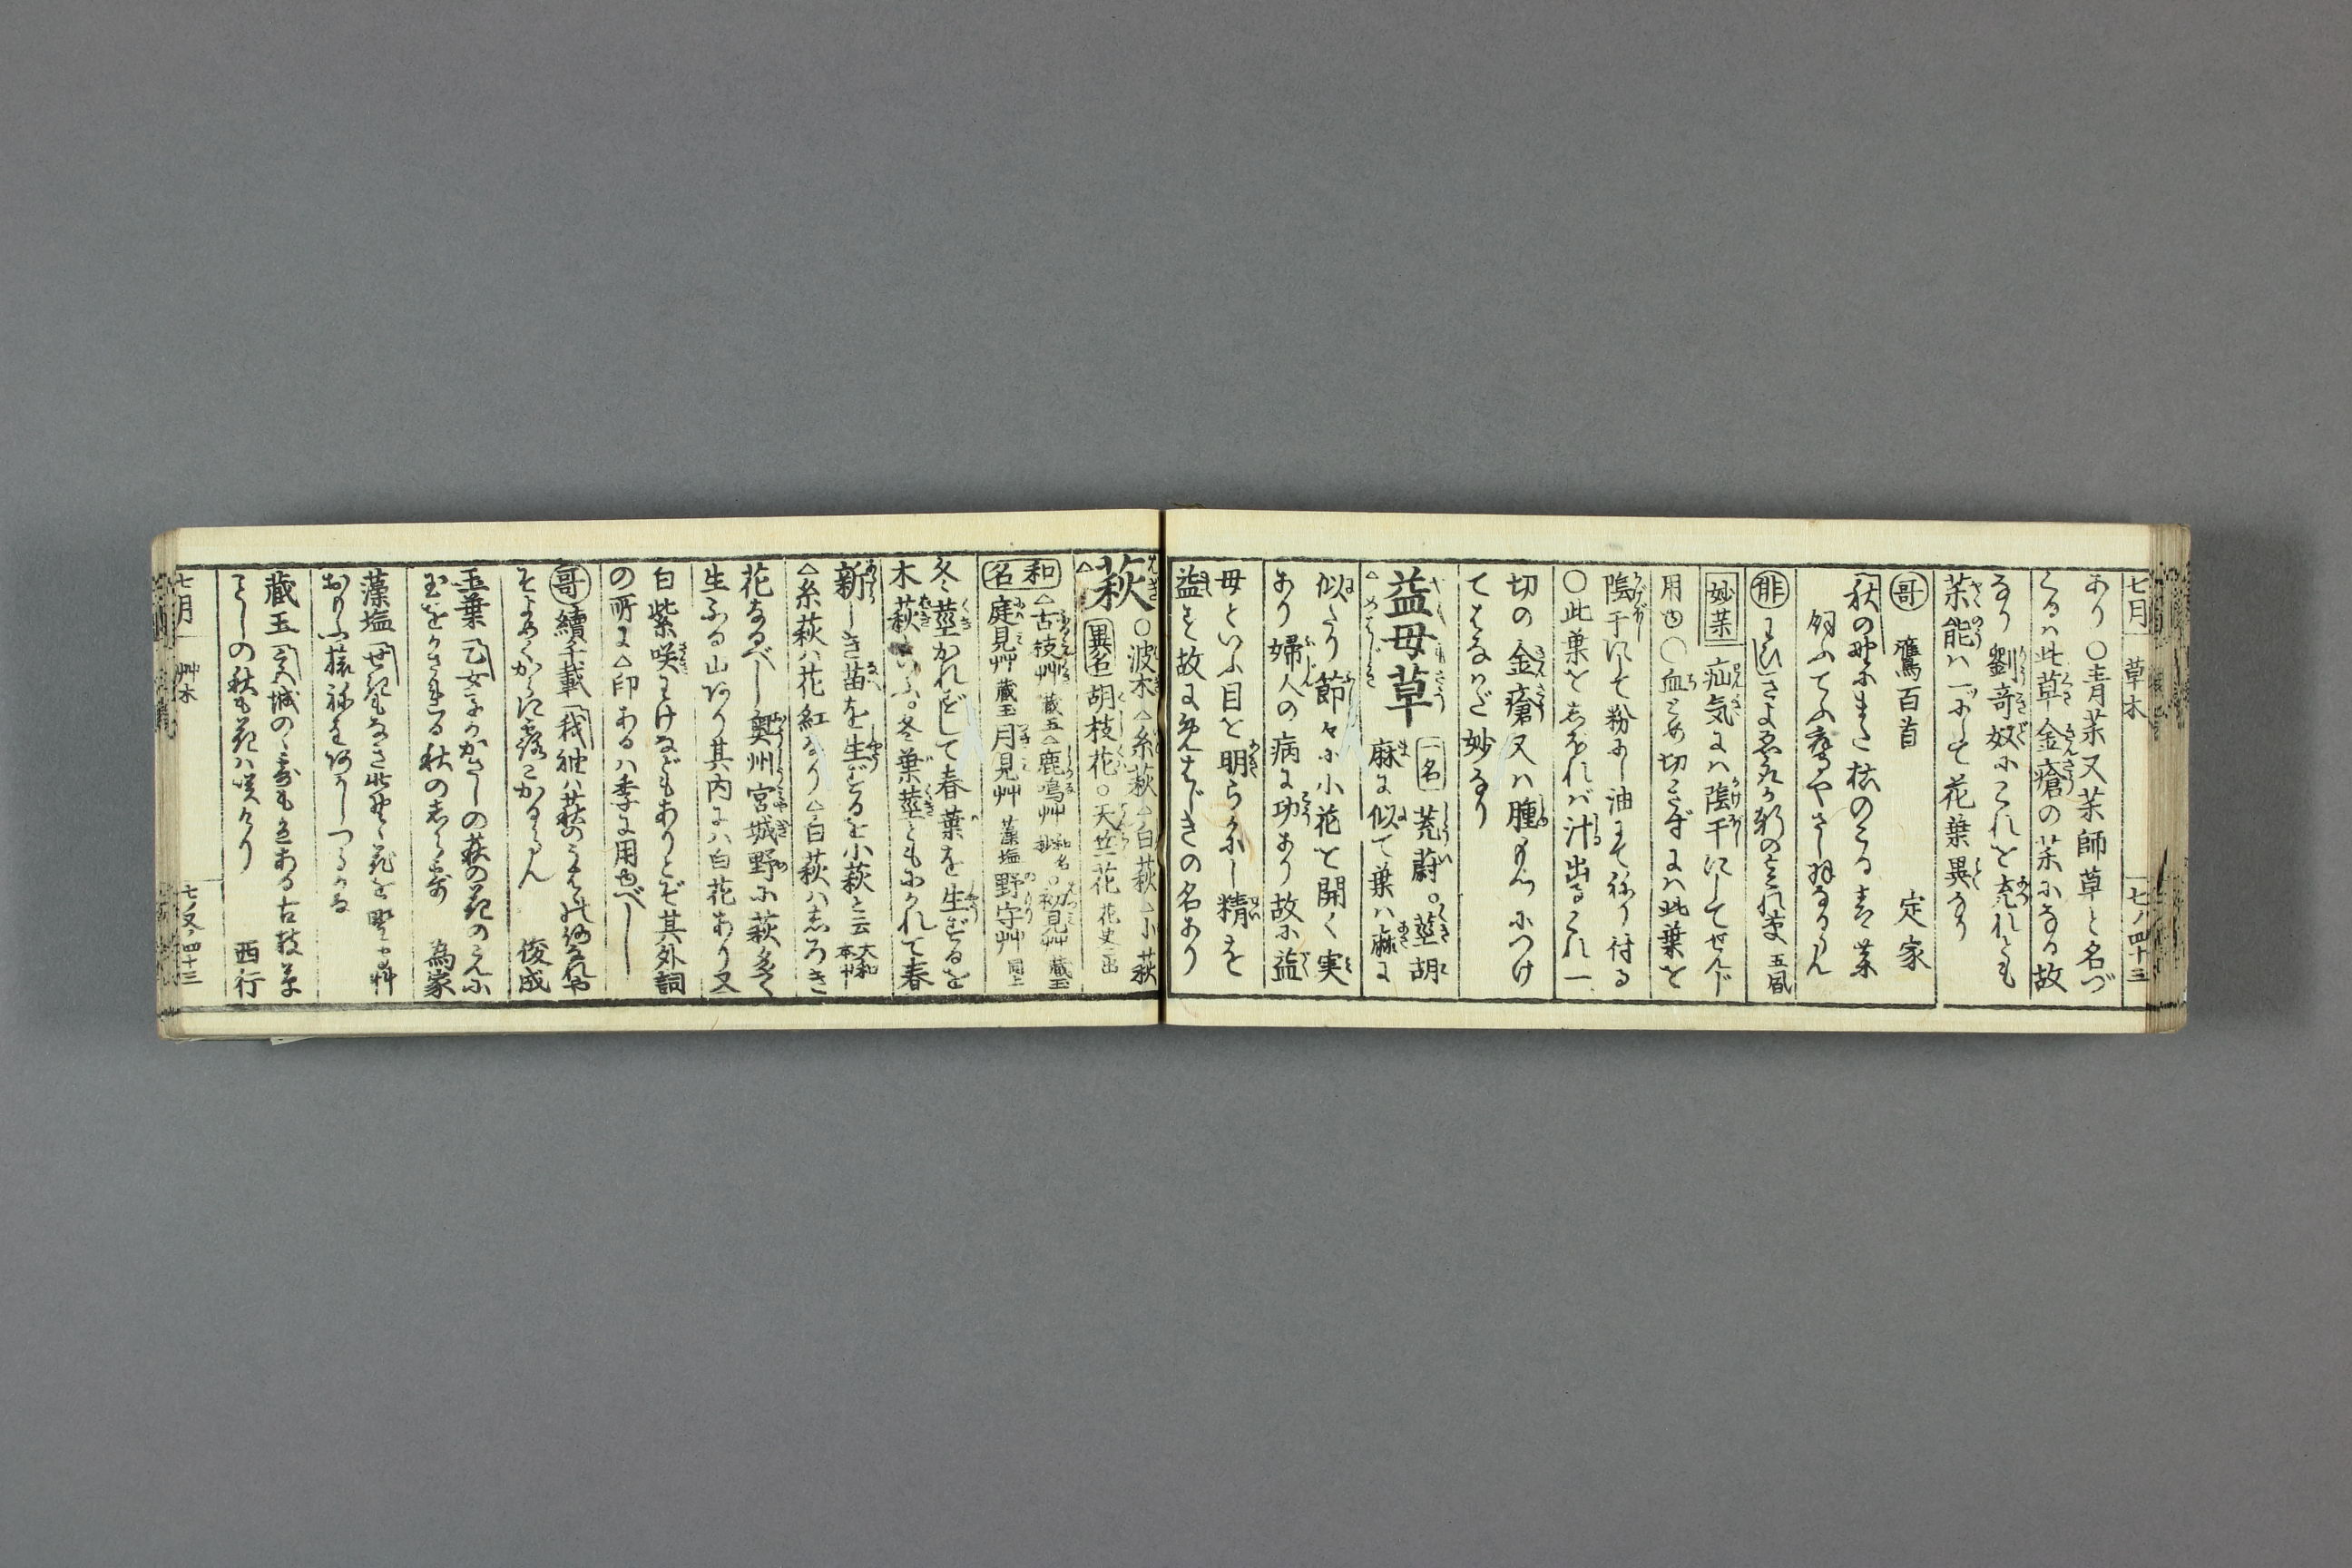 七月 草木 七ノ四十三
あり○青薬又薬師草と名づ
くるハ此草金瘡の薬になる故
なり劉竒奴にこれを充れども
薬能ハ一にして花葉異なり
哥 鷹百首 定家
秋の野にまた枯のこる青薬
飼ふてふ鷹やさし羽なるらん
俳
妙薬 疝気にハ陰干にしてせんじ
用ゆ○血とめ切きずにハ此葉を
陰干にして粉にし油にてねり付る
○此葉をしぼれバ汁出るこれ一
切の金瘡又ハ腫もつにつけ
てはなハだ妙なり
益母草 一名 茺蔚○茎胡
△めはじき 麻に似て葉ハ麻に
似たり節々に小花を開く実
あり婦人の病に功あり故に益
母といふ目を明らかにし精を
益す故にめはじきの名あり
萩 ○波木△糸萩△白萩△小萩
△ 異名 胡枝花○天竺花 花史ニ出
和名 △古枝艸 蔵玉△鹿鳴艸 和名抄○初見艸 蔵玉
庭見艸 蔵玉 月見艸 藻塩 野守艸 同上
冬茎かれずして春葉を生ずるを
木萩といふ。冬葉茎ともにかれて春
新しき苗を生ずるを小萩と云 大和本艸
△糸萩ハ花紅なり△白萩ハしろき
花なるべし奥州宮城野に萩多く
生ふる山あり其内にハ白花あり又
白紫咲わけなどもありとぞ其外詞
の所に△印あるハ季に用ゆべし
哥 續千載 我袖ハ萩の
そよめくからに露こかるらん 俊成
玉葉 乙女子がかざしの萩の花のえに
玉をかざれる秋のしら露 為家
藻塩
蔵玉 宮城の
ことしの秋も花ハ咲けり 西行
七月 艸木 七ノ又四十三